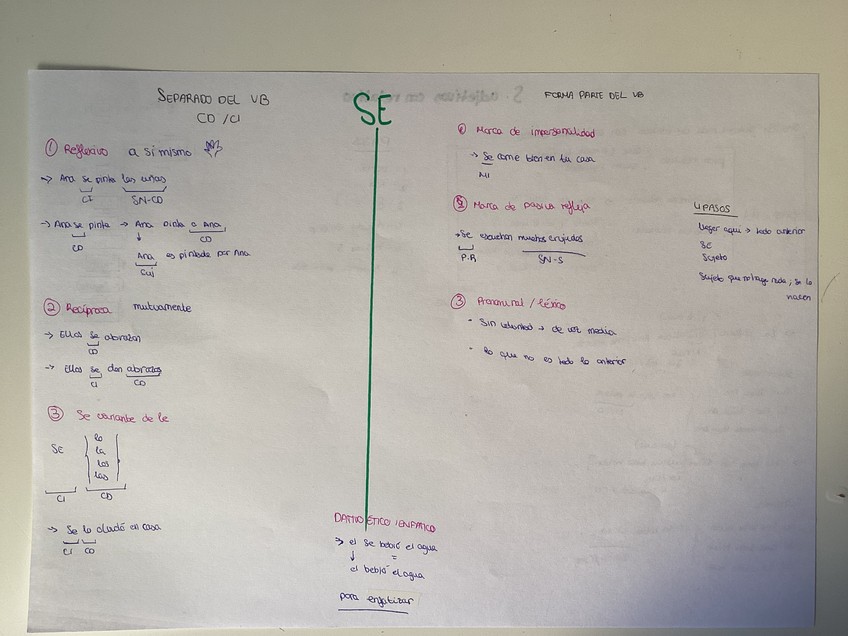 SE
SEPARADO DEL VB
CD / CI
① Reflexivo a sí mismo
→ Ana se pinta las uñas
CI SN-CD
→ Ana se pinta → Ana pinta a Ana
CD CD
Ana es pintada por Ana
Suj
② Recíproca mutuamente
→ Ellas se abrazan
CD
→ Ellas se dan abrazos
CI CD
③ Se variante de le
SE
lo
la
los
las
CI CD
→ Se lo olvidó en casa
CI CD
FORMA PARTE DEL VB
① Marca de impersonalidad
→ Se come bien en tu casa
MI
② Marca de pasiva refleja
→ Se escuchan muchos
P.R SN-S
③ Pronominal / léxico
• Sin voluntad → de voz media
• lo que no es todo lo anterior
4 PASOS
llegar aquí → todo anterior
SE
Sujeto
Sujeto que no haga nada; se lo
hacen
DATIVO ÉTICO / ENFÁTICO
→ el se bebió el agua
↓ =
el bebió el agua
para enfatizar